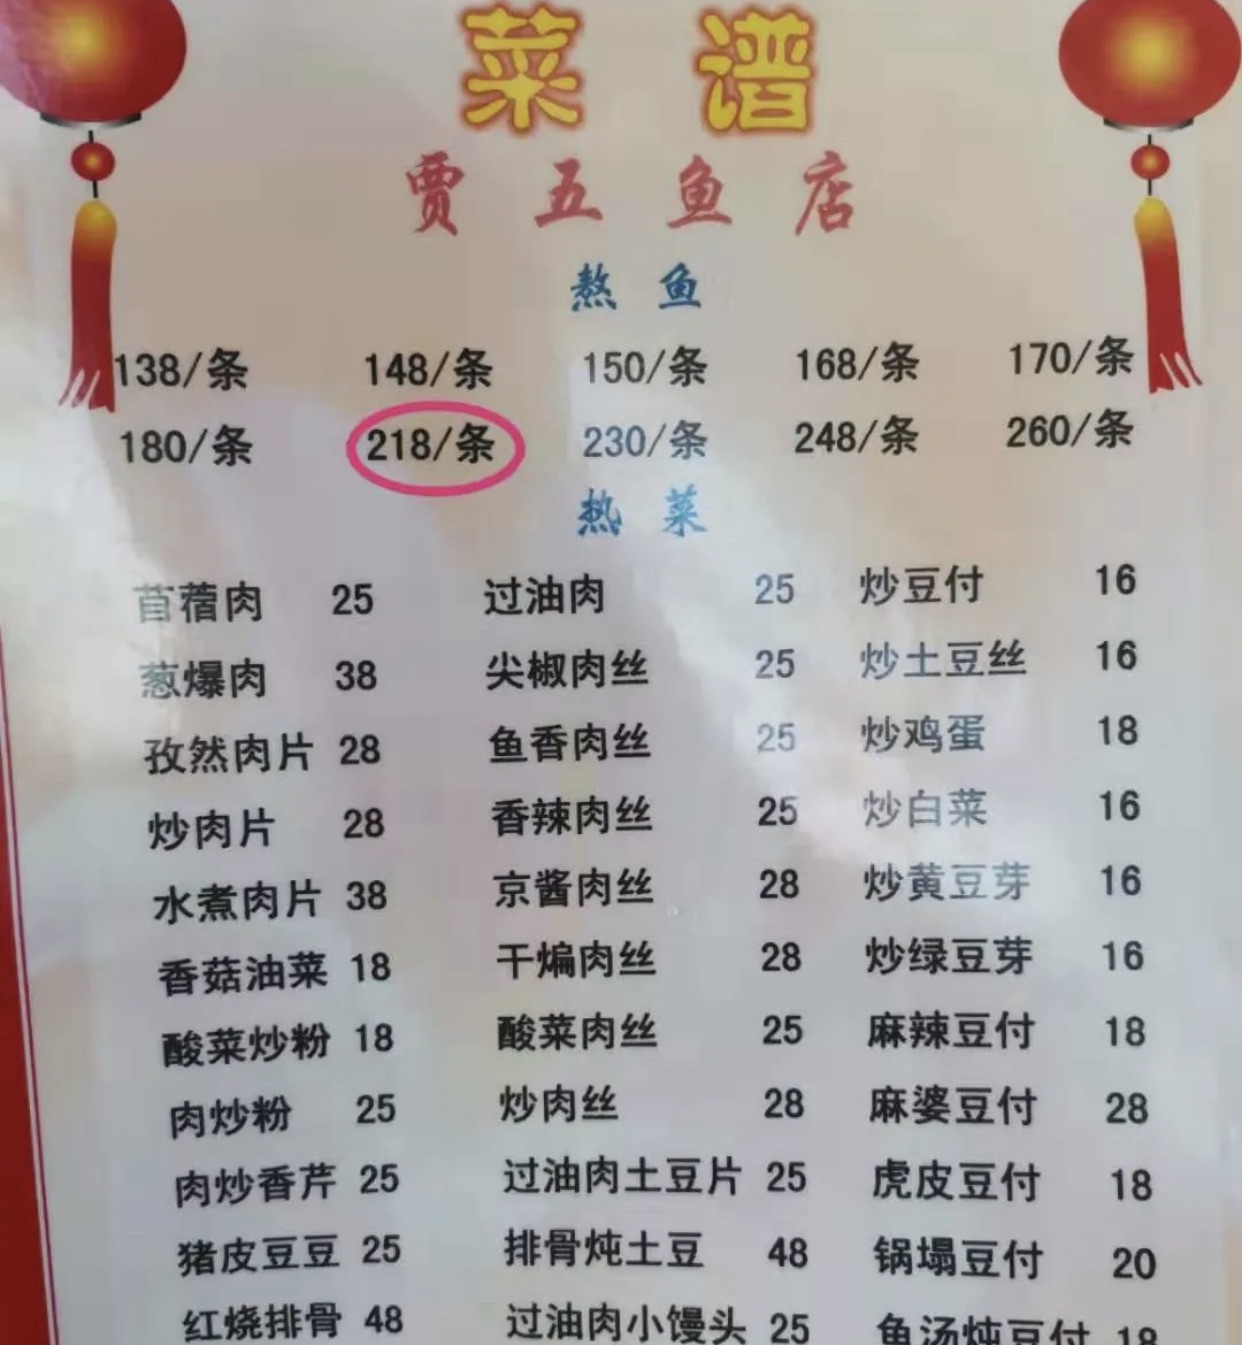 菜谱
贾五鱼店
熬鱼
138/条 148/条 150/条 168/条 170/条
180/条 218/条 230/条 248/条 260/条
热菜
苜蓿肉 25 过油肉 25 炒豆付 16
葱爆肉 38 尖椒肉丝 25 炒土豆丝 16
孜然肉片 28 鱼香肉丝 25 炒鸡蛋 18
炒肉片 28 香辣肉丝 25 炒白菜 16
水煮肉片 38 京酱肉丝 28 炒黄豆芽 16
香菇油菜 18 干煸肉丝 28 炒绿豆芽 16
酸菜炒粉 18 酸菜肉丝 25 麻辣豆付 18
肉炒粉 25 炒肉丝 28 麻婆豆付 28
肉炒香芹 25 过油肉土豆片 25 虎皮豆付 18
猪皮豆豆 25 排骨炖土豆 48 锅塌豆付 20
红烧排骨 48 过油肉小馒头 25 鱼汤炖豆付 18